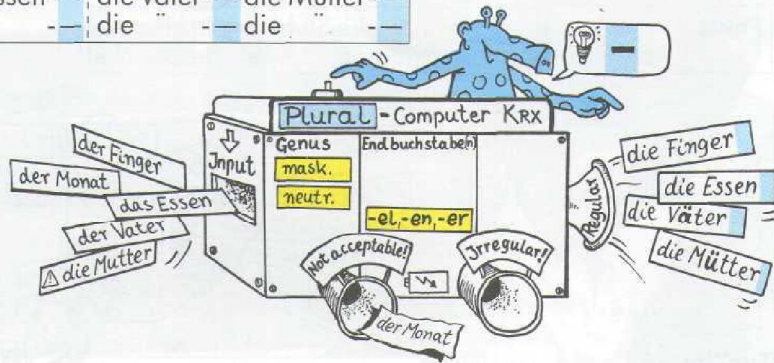 ssen
die Väter
die Mütter
-
die ¨ -
die ¨ -
-
Plural - Computer KRX
Input
Genus
mask.
neutr.
Endbuchstabe(n)
-el, -en, -er
der Finger
der Monat
das Essen
der Vater
⚠ die Mutter
Not acceptable!
der Monat
Irregular!
Regular
die Finger
die Essen
die Väter
die Mütter